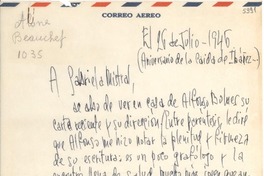 CORREO AEREO
Alone
Beauchef
1035
El 26 de Julio - 1946
(Aniversario de la Caída de Ibáñez.-
A Gabriela Mistral,
se acabo de ver en casa de Alfonso Bolnes su
carta reciente y su dirección. (Entre paréntesis, le diré
que Alfonso me hizo notar la plenitud y firmeza
de su escritura: es un poco grafólogo y la
encontró llena de salud